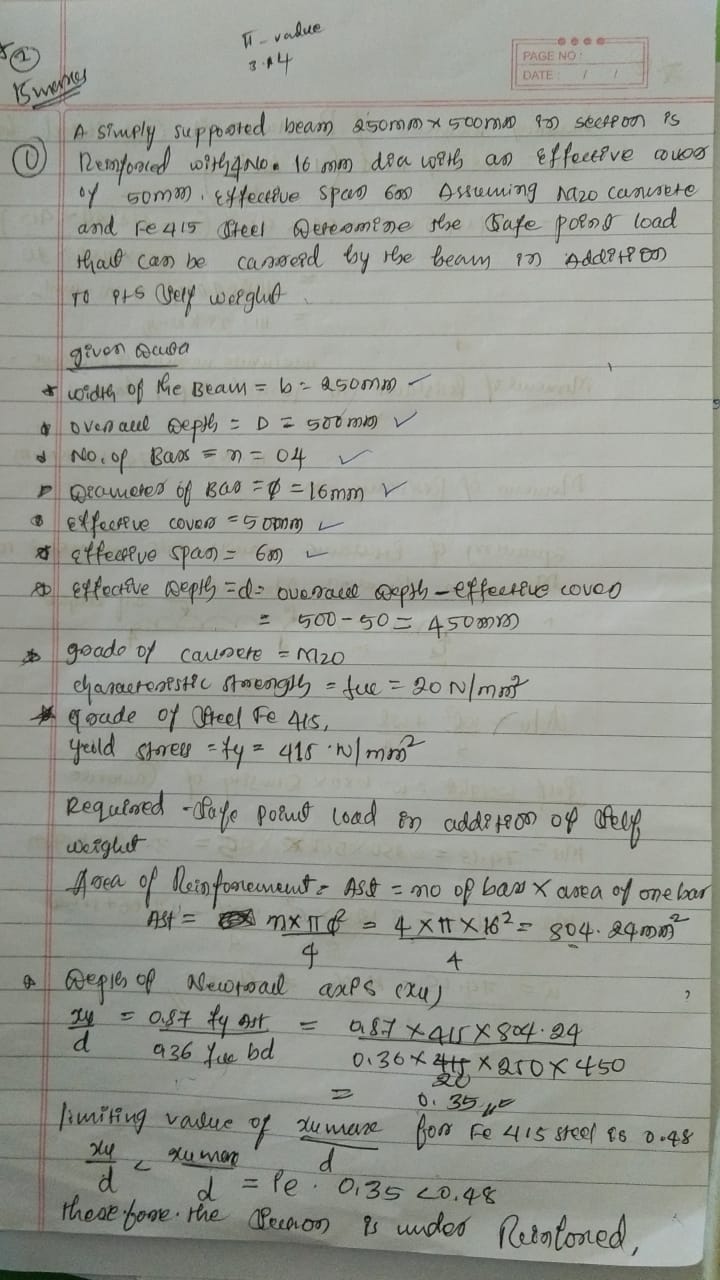 π - value
3.14
②
15 marks
PAGE NO:
DATE: / /
① A simply supported beam 250mm x 500mm in section is
Reinforced with 4 No. 16 mm dia with an Effective cover
of 50mm. Effective span 6m Assuming M20 concrete
and Fe 415 Steel Determine the Safe point load
that can be carried by the beam in Addition
To its Self weight.
given Data
* width of the Beam = b = 250mm ✓
* overall Depth = D = 500mm ✓
* No. of Bars = n = 04 ✓
* Diameter of Bar = φ = 16mm ✓
* Effective cover = 50mm ✓
* Effective span = 6m ✓
* Effective Depth = d = overall depth - effective cover
= 500 - 50 = 450mm
* grade of concrete = M20
characteristic strength = fck = 20 N/mm²
* grade of Steel Fe 415,
yeild stress = fy = 415 N/mm²
Required - Safe point load in addition of Self
weight
Area of Reinforcement = Ast = no of bar x area of one bar
Ast = n x π φ / 4 = 4 x π x 16² / 4 = 804.24mm²
* Depth of Neutral axis (xu)
xu / d = 0.87 fy Ast / 0.36 fck bd = 0.87 x 415 x 804.24 / 0.36 x 20 x 250 x 450
= 0.35
limiting value of xumax / d for Fe 415 steel is 0.48
xu / d < xumax / d = ie. 0.35 < 0.48
therefore. the Section is under Reinforced,